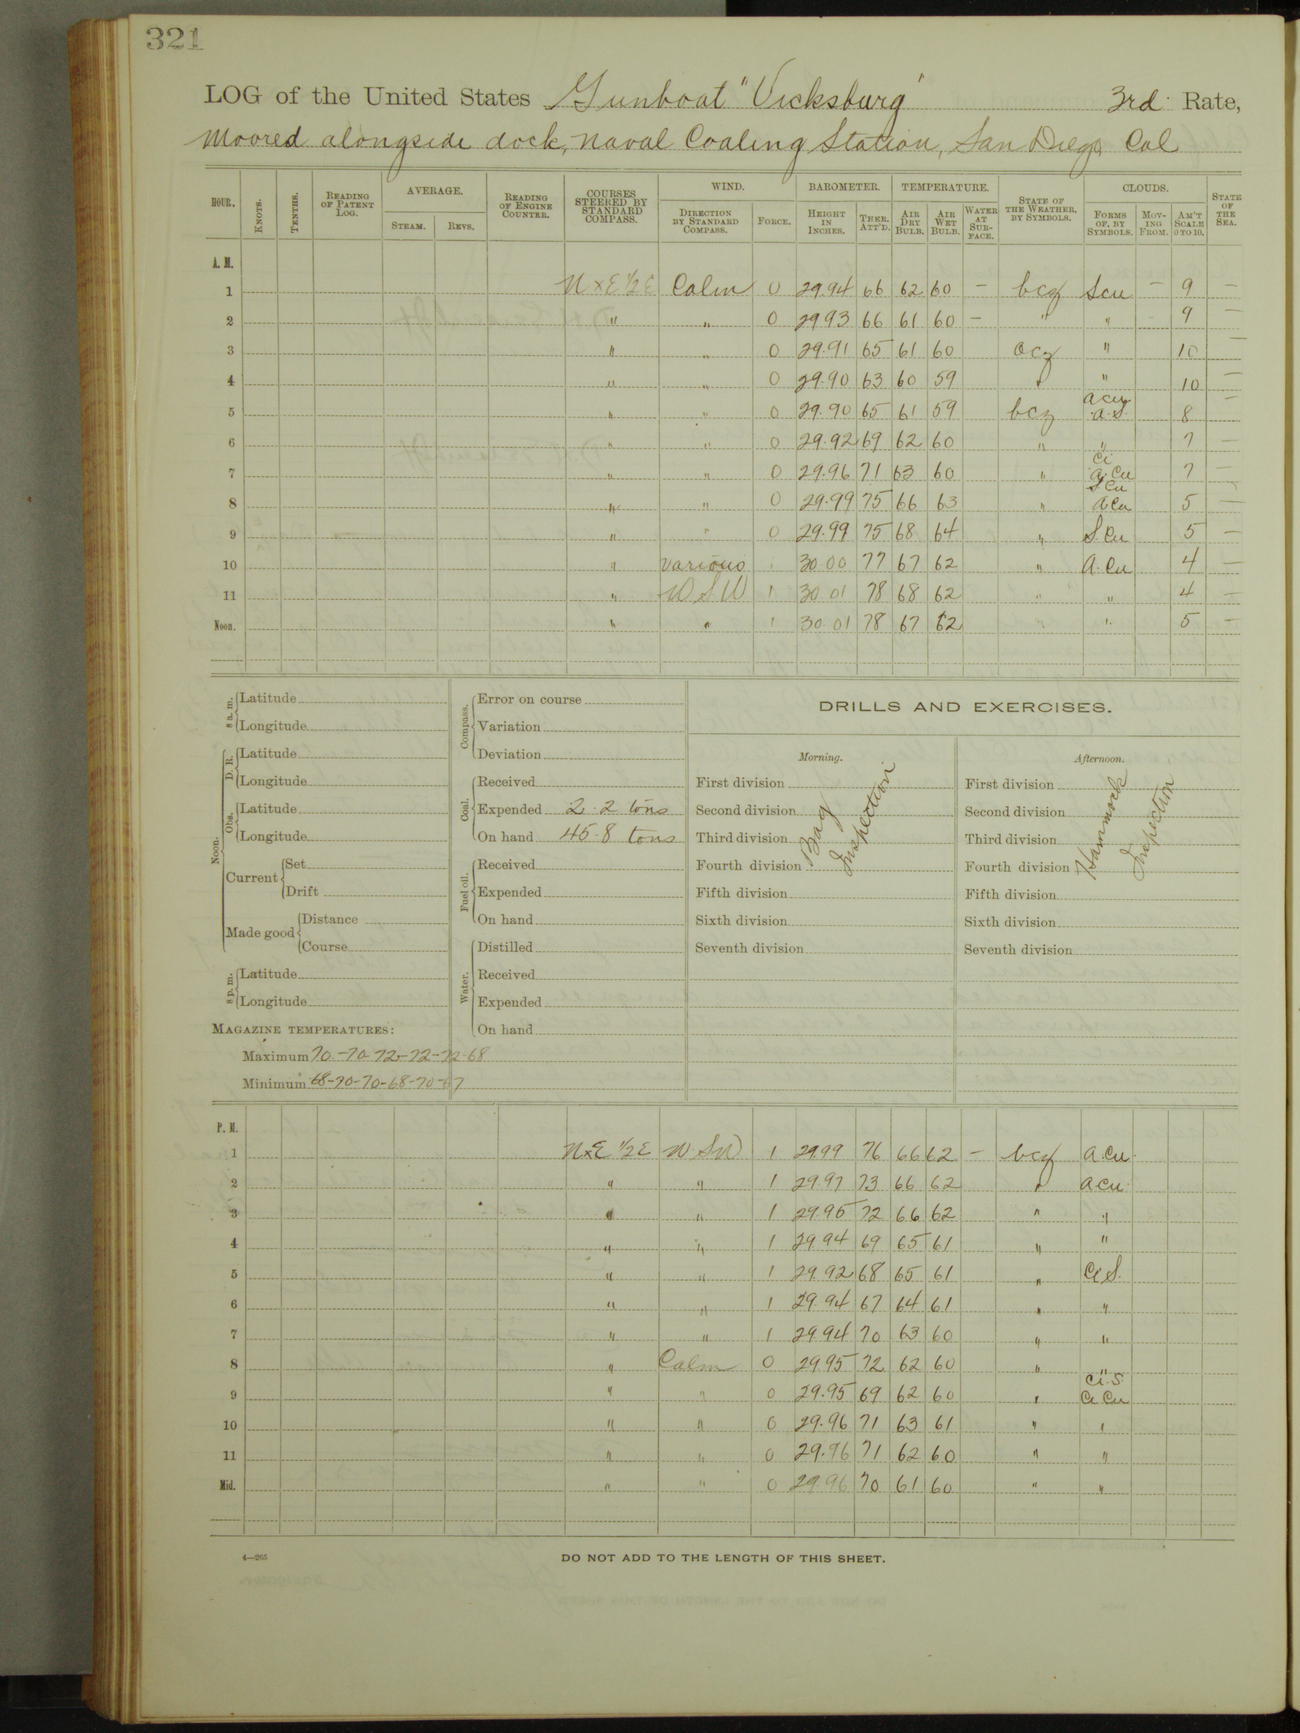 321
LOG of the United States Gunboat "Vicksburg" 3rd Rate,
Moored alongside dock, Naval Coaling Station, San Diego Cal
HOUR. KNOTS. TENTHS. READING OF PATENT LOG. AVERAGE. STEAM. REVS. READING OF ENGINE COUNTER. COURSES STEERED BY STANDARD COMPASS. WIND. DIRECTION BY STANDARD COMPASS. FORCE. BAROMETER. HEIGHT IN INCHES. THER. ATT'D. TEMPERATURE. AIR DRY BULB. AIR WET BULB. WATER AT SURFACE. STATE OF THE WEATHER, BY SYMBOLS. CLOUDS. FORMS OF, BY SYMBOLS. MOVING FROM. AM'T SCALE 0 TO 10. STATE OF THE SEA.
A. M.
1 N x E 1/2 E Calm 0 29.94 66 62 60 — bcz Scu — 9 —
2 " " 0 29.93 66 61 60 — " " - 9 —
3 " " 0 29.91 65 61 60 ocz " 10 —
4 " " 0 29.90 63 60 59 " " 10 —
5 " " 0 29.90 65 61 59 bcz a cu a.s. 8 —
6 " " 0 29.92 69 62 60 " " 7 —
7 " " 0 29.96 71 63 60 " Ci a.Cu 7 —
8 " " 0 29.99 75 66 63 " S Cu a Cu 5 —
9 " " 0 29.99 75 68 64 " S.Cu 5 —
10 " various 1 30.00 77 67 62 " a.Cu 4 —
11 " W S W 1 30.01 78 68 62 " " 4 —
Noon. " " 1 30.01 78 67 62 " " 5 —
8 a. m. Latitude
Longitude
Noon. D. R. Latitude
Longitude
Obs. Latitude
Longitude
Current Set
Drift
Made good Distance
Course
8 p. m. Latitude
Longitude
MAGAZINE TEMPERATURES:
Maximum 70-70-72-72-72-68
Minimum 68-70-70-68-70-67
Compass. Error on course
Variation
Deviation
Coal. Received
Expended 2.2 tons
On hand 45.8 tons
Fuel oil. Received
Expended
On hand
Water. Distilled
Received
Expended
On hand
DRILLS AND EXERCISES.
Morning.
First division
Second division
Third division
Fourth division
Fifth division
Sixth division
Seventh division
Bag Inspection
Afternoon.
First division
Second division
Third division
Fourth division
Fifth division
Sixth division
Seventh division
Hammock Inspection
P. M.
1 NxE 1/2 E W SW 1 29.99 76 66 62 — bcz a.cu.
2 " " 1 29.97 73 66 62 " a.cu.
3 " " 1 29.95 72 66 62 " "
4 " " 1 29.94 69 65 61 " "
5 " " 1 29.92 68 65 61 " Ci S.
6 " " 1 29.94 67 64 61 " "
7 " " 1 29.94 70 63 60 " "
8 " Calm 0 29.95 72 62 60 " "
9 " " 0 29.95 69 62 60 " Ci.S. Ci Cu
10 " " 0 29.96 71 63 61 " "
11 " " 0 29.96 71 62 60 " "
Mid. " " 0 29.96 70 61 60 " "
4—265
DO NOT ADD TO THE LENGTH OF THIS SHEET.